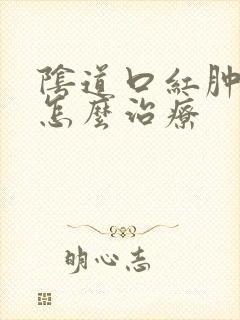 陰道口紅肿
怎麼治療
明心志